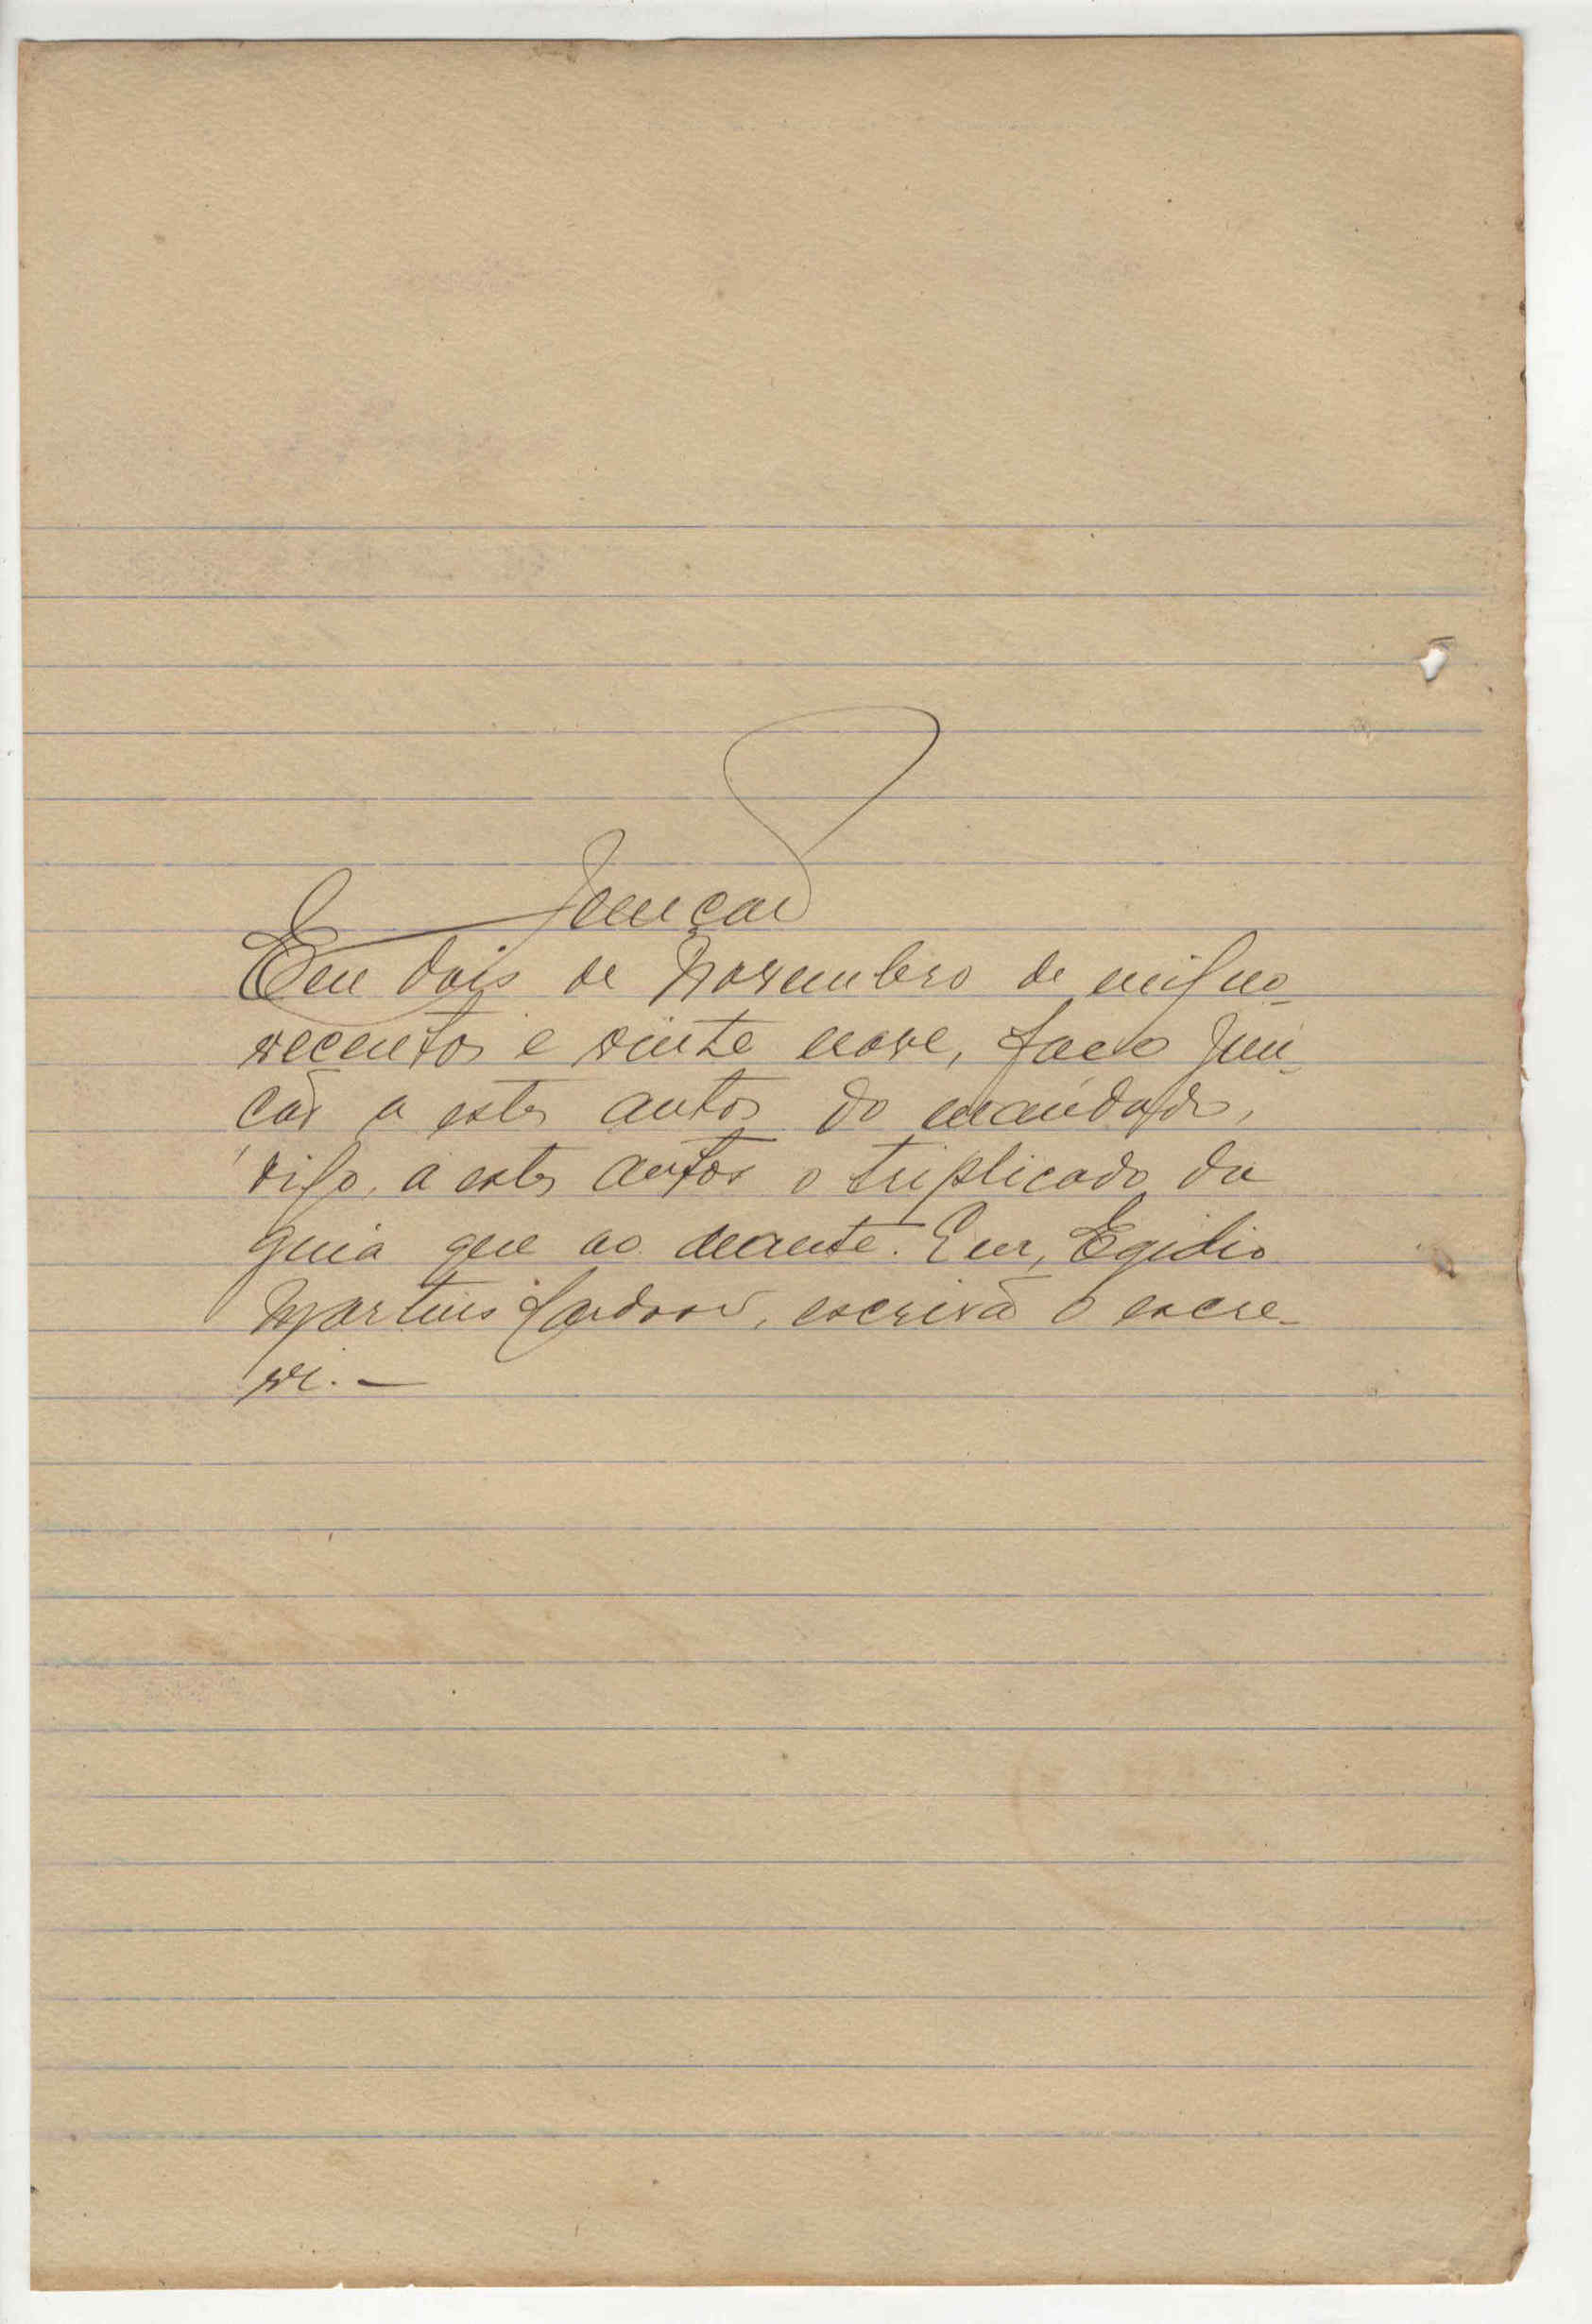 Junção
Em dois de Novembro de mil no-
vecentos e vinte nove, faço jun-
ção a estes autos do mandado,
digo, a estes autos o triplicado da
guia que ao deante. Eu, Egidio
Martins Cardoso, escrivão o escre-
vi. —